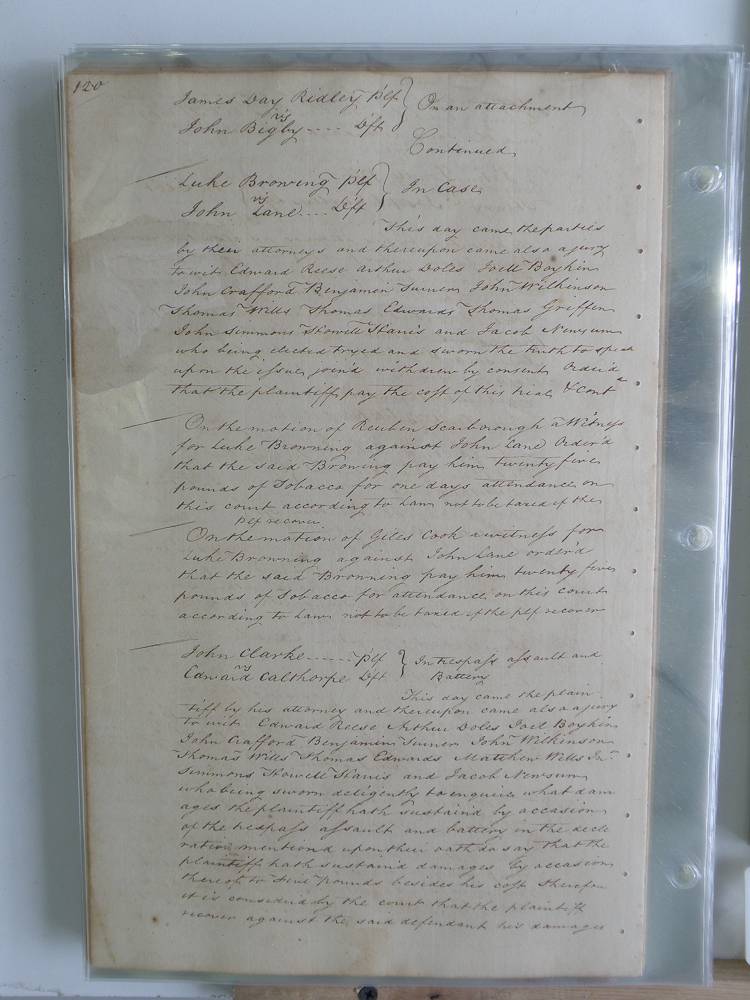 120
James Day Ridley plf } On an attachment
vs
John Bigby .... Dft
Continued
Luke Browing plf } In Case
vs
John Lane .... Dft
This day came the parties
by their attorneys and thereupon came also a jury
to wit Edward Reese Arthur Doles Joell Boykin
John Crafford Benjamin Turner John Wilkinson
Thomas Wills Thomas Edwards Thomas Griffen
John Simmons Howell Harris and Jacob Newsum
who being elected tryed and sworn the truth to speak
upon the issue join'd withdrew by consent Order'd
that the plaintiff pay the cost of this trial & Contd
On the motion of Reuben Scarborough a Witness
for Luke Browning against John Lane Order'd
that the said Browing pay him twenty five
pounds of Tobacco for one days attendance on
this court according to Law not to be taxed if the
plf recover
On the motion of Giles Cook a witness for
Luke Browning against John Lane order'd
that the said Browning pay him twenty five
pounds of Tobacco for attendance on this court
according to Law not to be taxed if the plf recover
John Clarke ....... plf } In trespass assault and
vs
Edward Calthorpe Dft Battery
This day came the plain
tiff by his attorney and thereupon came also a jury
to wit Edward Reese Arthur Doles Joel Boykin
John Crafford Benjamin Turner John Wilkinson
Thomas Wills Thomas Edwards Matthew Wills Jno
Simmons Howell Harris and Jacob Newsum
who being sworn deligently to enquire what dam
ages the plaintiff hath sustain'd by occasion
of the trespass assault and battery in the decla
ration mention'd upon their oath do say that the
plaintiff hath sustain'd damages by occasion
thereof to five pounds besides his cost Therefore
it is consider'd by the court that the plaintiff
recover against the said defendant his damages